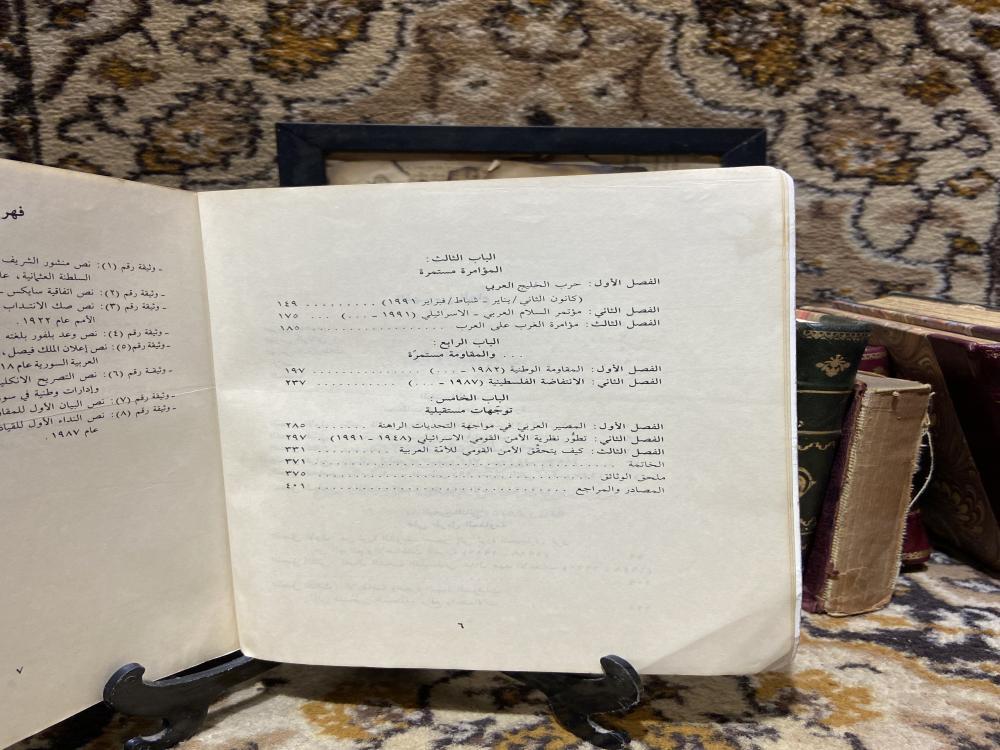 الباب الثالث:
المؤامرة مستمرة
الفصل الأول: حرب الخليج العربي
(كانون الثاني/يناير - شباط/فبراير ١٩٩١) ......... ١٤٩
الفصل الثاني: مؤتمر السلام العربي - الاسرائيلي (١٩٩١ - ...) ..... ١٧٥
الفصل الثالث: مؤامرة الغرب على العرب ............ ١٨٥
الباب الرابع:
... والمقاومة مستمرّة
الفصل الأول: المقاومة الوطنية (١٩٨٢ - ...) ............ ١٩٧
الفصل الثاني: الانتفاضة الفلسطينية (١٩٨٧ - ...) .......... ٢٣٧
الباب الخامس:
توجّهات مستقبلية
الفصل الأول: المصير العربي في مواجهة التحديات الراهنة ....... ٢٨٥
الفصل الثاني: تطوّر نظرية الأمن القومي الاسرائيلي (١٩٤٨ - ١٩٩١) . ٢٩٧
الفصل الثالث: كيف يتحقّق الأمن القومي للأمّة العربية .......... ٣٣١
الخاتمة ................................ ٣٧١
ملحق الوثائق ............................. ٣٧٥
المصادر والمراجع .......................... ٤٠١
٦
فهر
- وثيقة رقم (١): نص منشور الشريف
السلطنة العثمانية، عا
- وثيقة رقم (٢): نص اتفاقية سايكس -
- وثيقة رقم (٣): نص صك الانتداب
الأمم عام ١٩٢٢.
- وثيقة رقم (٤): نص وعد بلفور بلغته
- وثيقة رقم (٥): نص إعلان الملك فيصل،
العربية السورية عام ١٨
- وثيقة رقم (٦): نص التصريح الانكلي
وإدارات وطنية في سور
- وثيقة رقم (٧): نص البيان الأول للمقاو
- وثيقة رقم (٨): نص النداء الأول للقياد
عام ١٩٨٧.
٧